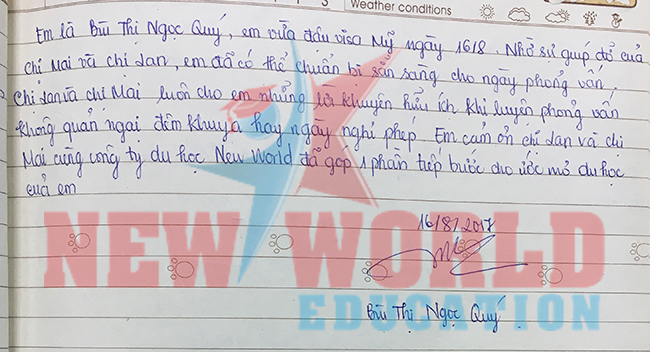 Weather conditions
Em là Bùi Thị Ngọc Quý, em vừa đậu visa Mỹ ngày 16/8. Nhờ sự giúp đỡ của
chị Mai và chị Lan, em đã có thể chuẩn bị sẵn sàng cho ngày phỏng vấn,
Chị Lan và chị Mai luôn cho em những lời khuyên hữu ích khi luyện phỏng vấn
không quản ngại đêm khuya hay ngày nghỉ phép. Em cảm ơn chị Lan và chị
Mai cùng công ty du học New World đã góp 1 phần tiếp bước cho ước mơ du học
của em
16/8/2017
NEW WORLD
EDUCATION
Bùi Thị Ngọc Quý